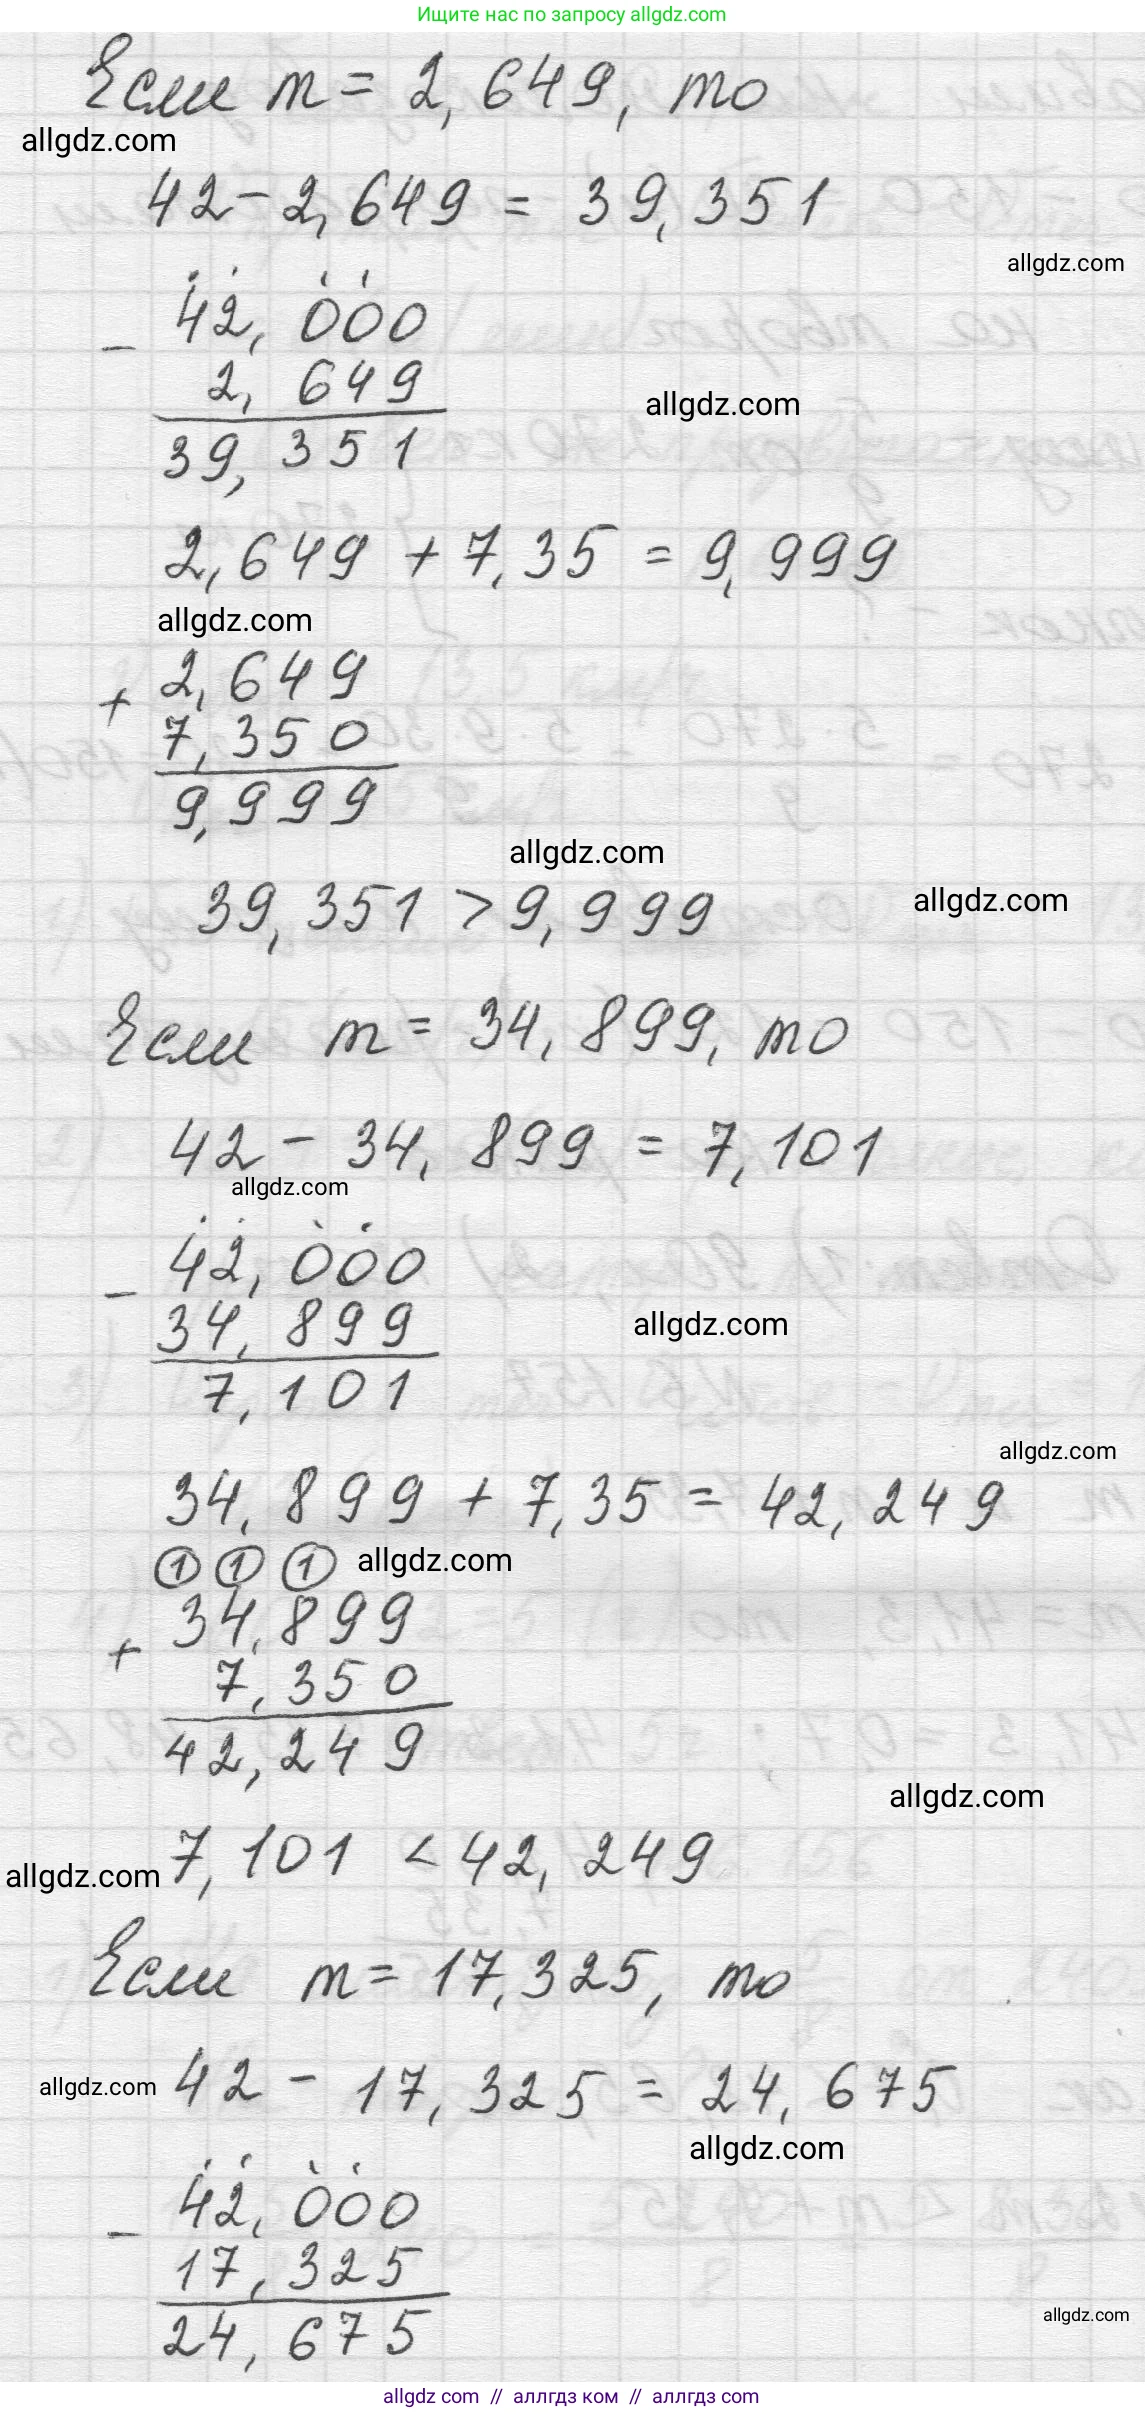 Ищите нас по запросу allgdz.com
Если m = 2,649, то
allgdz.com
42 - 2,649 = 39,351
allgdz.com
42,000
-
2,649
allgdz.com
39,351
2,649 + 7,35 = 9,999
allgdz.com
2,649
+
7,350
9,999
allgdz.com
39,351 > 9,999
allgdz.com
Если m = 34,899, то
42 - 34,899 = 7,101
allgdz.com
42,000
-
34,899
allgdz.com
7,101
allgdz.com
34,899 + 7,35 = 42,249
1 1 1
allgdz.com
34,899
+
7,350
42,249
allgdz.com
7,101 < 42,249
allgdz.com
Если m = 17,325, то
42 - 17,325 = 24,675
allgdz.com
allgdz.com
42,000
-
17,325
24,675
allgdz.com
allgdz com // аллгдз ком // аллгдз com